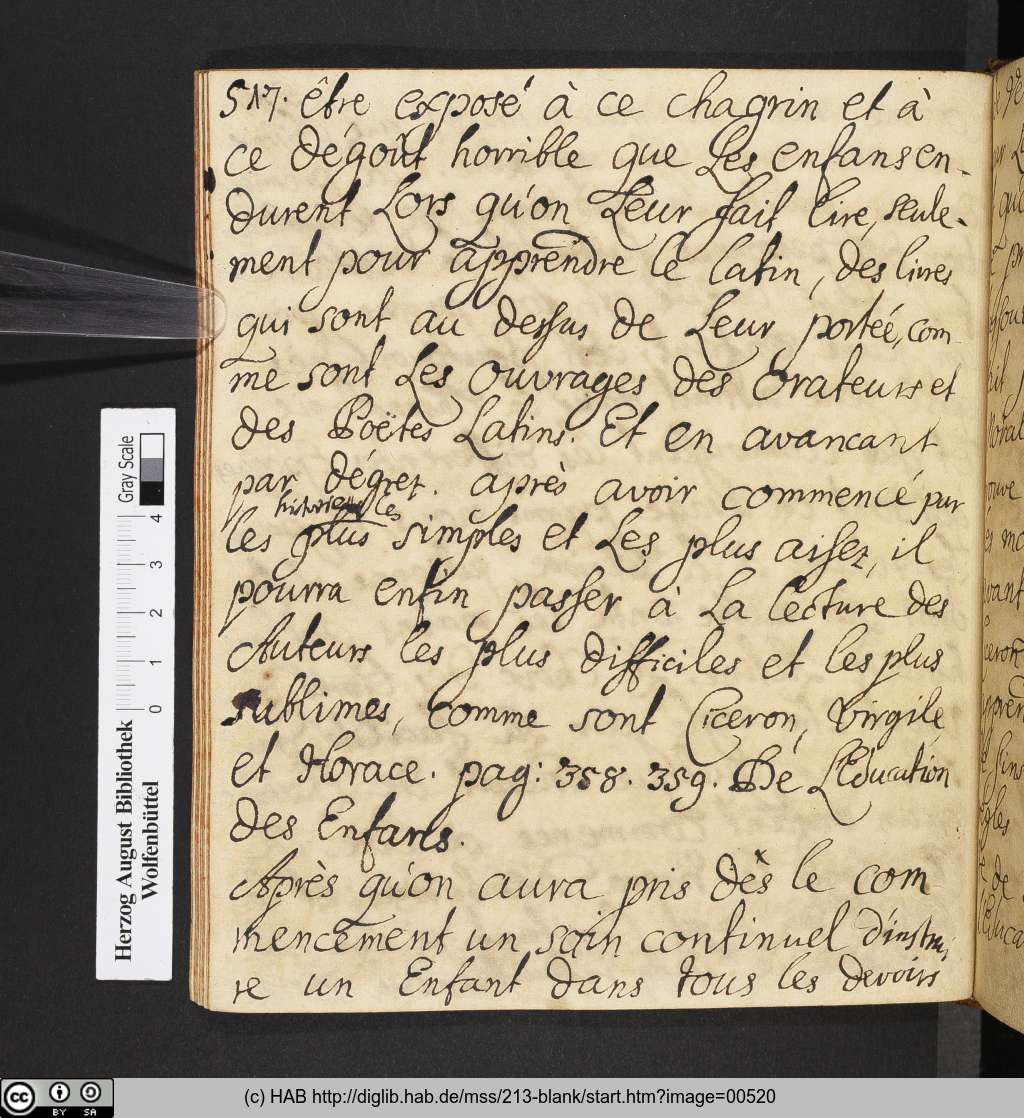 517. être exposé à ce chagrin et à
ce dégoût horrible que Les enfans en-
durent Lors qu'on Leur fait lire, seule-
ment pour apprendre le latin, des livres
qui sont au dessus de Leur porteé, com
me sont Les Ouvrages des Orateurs et
des Poëtes Latins. Et en avancant
par dégrez. après avoir commencé par
historiens les
les plus simples et Les plus aisez, il
pourra enfin passer à La lecture des
Auteurs les plus difficiles et les plus
sublimes, comme sont Ciceron, Virgile
et Horace. pag: 358. 359. De L'Education
des Enfans.
Après qu'on aura pris dès le com
mencement un soin continuel d'instrui
re un Enfant dans tous les devoirs
Gray Scale
0 1 2 3 4
Herzog August Bibliothek
Wolfenbüttel
cc BY SA
(c) HAB http://diglib.hab.de/mss/213-blank/start.htm?image=00520